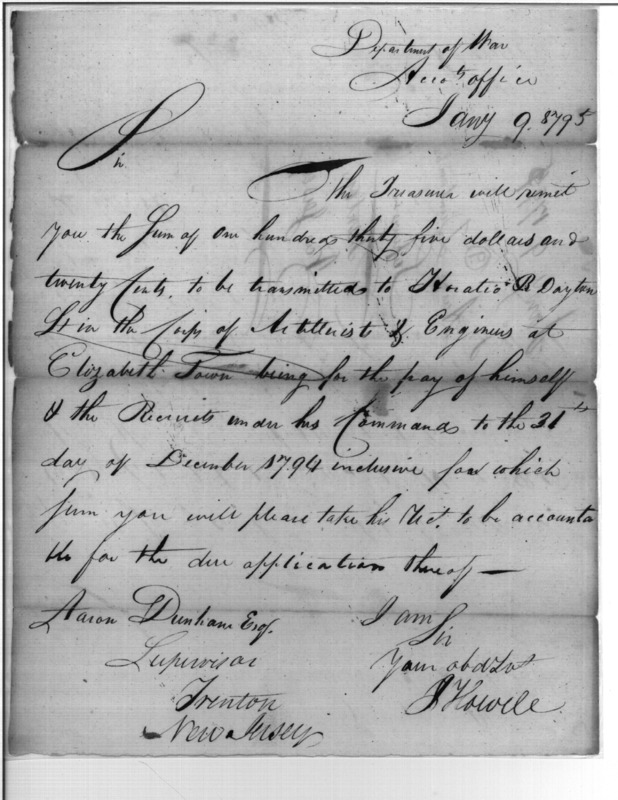 Department of War
Accots office
Jany 9. 1795
Sir
The Treasurer will remit
you the Sum of one hundred thirty five dollars and
twenty Cents, to be transmitted to Horatio R Dayton
Lt in the Corps of Artillerist & Engineers at
Elizabeth Town being for the pay of himself
& the Recruits under his Command to the 31st
day of December 1794 inclusive for which
sum you will please take his Rct. to be accounta
ble for the due application thereof —
Aaron Dunham Esqr.
Supervisor
Trenton
New Jersey
I am
Sir
Your obd Svt
J Howell